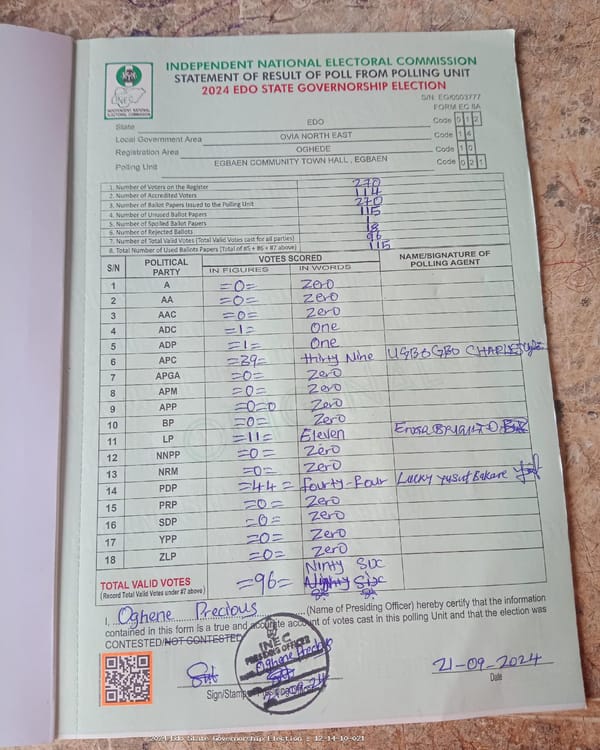 INDEPENDENT NATIONAL ELECTORAL COMMISSION
STATEMENT OF RESULT OF POLL FROM POLLING UNIT
2024 EDO STATE GOVERNORSHIP ELECTION
INEC
INDEPENDENT NATIONAL ELECTORAL COMMISSION
S/N: EG/0003777
FORM EC 8A
State EDO Code 0 1 2
Local Government Area OVIA NORTH EAST Code 1 4
Registration Area OGHEDE Code 1 0
Polling Unit EGBAEN COMMUNITY TOWN HALL , EGBAEN Code 0 2 1
1. Number of Voters on the Register 270
2. Number of Accredited Voters 114
3. Number of Ballot Papers Issued to the Polling Unit 270
4. Number of Unused Ballot Papers 115
5. Number of Spoiled Ballot Papers 1
6. Number of Rejected Ballots 18
7. Number of Total Valid Votes (Total Valid Votes cast for all parties) 96
8. Total Number of Used Ballots Papers (Total of #5 + #6 + #7 above) 115
S/N POLITICAL PARTY VOTES SCORED NAME/SIGNATURE OF POLLING AGENT
IN FIGURES IN WORDS
1 A =0= Zero
2 AA =0= Zero
3 AAC =0= Zero
4 ADC =1= One
5 ADP =1= One
6 APC =39= thirty Nine UGBOGBO CHARLES
7 APGA =0= Zero
8 APM =0= Zero
9 APP =0=0 Zero
10 BP =0= Zero
11 LP =11= Eleven
12 NNPP =0= Zero
13 NRM =0= Zero
14 PDP =44= fourty-four Lucky Yusuf Bakare
15 PRP =0= Zero
16 SDP =0= Zero
17 YPP =0= Zero
18 ZLP =0= Zero
Ninty Six
TOTAL VALID VOTES =96= Ninty Six
(Record Total Valid Votes under #7 above)
I, Oghene Precious (Name of Presiding Officer) hereby certify that the information
contained in this form is a true and accurate account of votes cast in this polling Unit and that the election was
CONTESTED/NOT CONTESTED
INEC
PRESIDING OFFICER
Oghene Precious
21-09-24
21-09-2024
Sign/Stamp
Date
2024 Edo State Governorship Election : 12-14-10-021